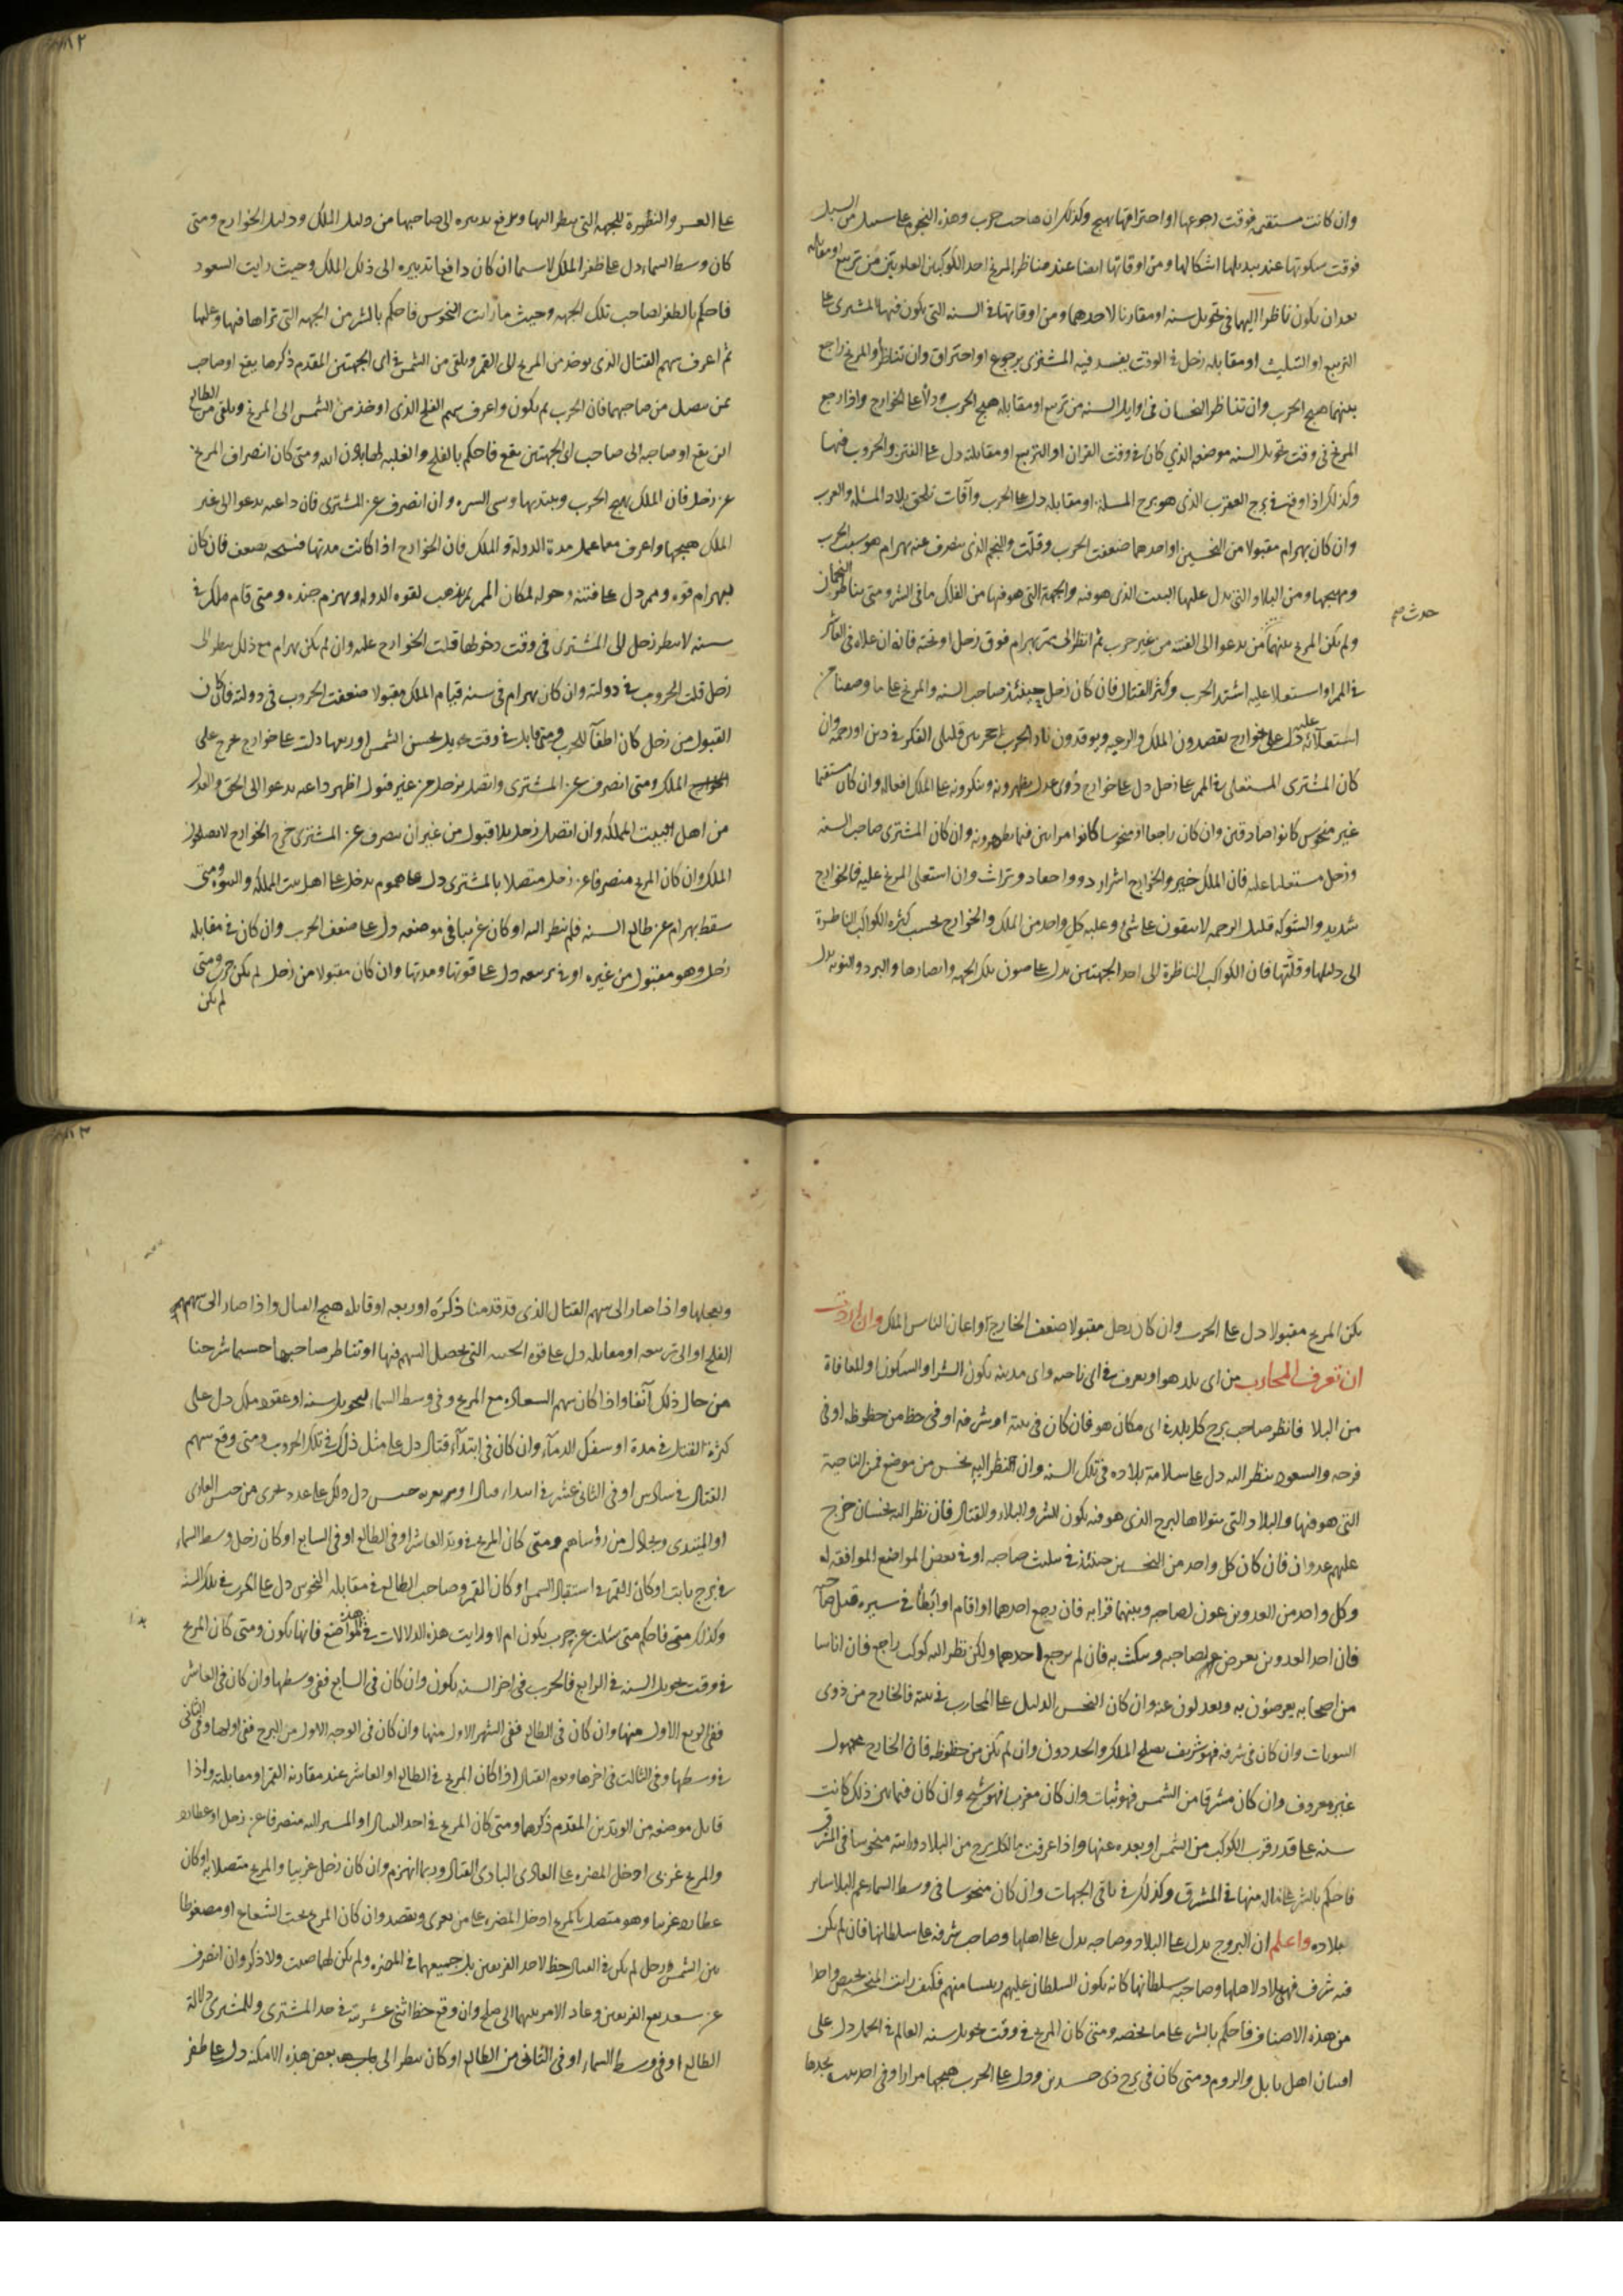 وان كانت مستقيمه فوقت رجوعها او احتراقها يهيج وكذلك ان صاحب حرب وهذه النجوم على سبيل من السبل
فوقت سكونها عند تبديلها اشكالها ومن اوقاتها ايضا عند مناظر المريخ احد الكوكبين العلويين من تربيع او مقابله
بعد ان يكون ناظرا اليهما فى تحويل سنه او مقارنا لاحدهما ومن اوقاتها فى السنه التى يكون فيها المشترى على
التربيع او التثليث او مقابله زحل فى الوقت يفسد فيه المشترى برجوع او احتراق وان تناظرا والمريخ راجع
بينهما هيج الحرب وان تناظر النحسان فى اوايل السنه من تربيع او مقابله هيج الحرب ودلا على الخوارج واذا رجع
المريخ فى وقت تحويل السنه موضعه الذي كان فى وقت القران او التربيع او مقابلته دل على الفتن والحروب فيها
وكذلك اذا وقع فى برج العقرب الذى هو برج المسله او مقابله دل على الحرب وآفات تلحق بلاد المسله والعرب
وان كان بهرام مقبولا من النحسين او احدهما ضعفت الحرب وقلّت والنجم الذى ينصرف عنه بهرام هو سبب الحرب
ومهيجها ومن البلاد التى يدل عليها البيت الذى هو فيه والجهة التى هو فيها من الفلك مافى الشر ومتى يتناظر النحسان
حدث صح
ولم يكن المريخ بينهما من يدعوا الى الفتنه من غير حرب ثم انظر الى ممر بهرام فوق زحل او تحته فانه ان علاه فى العاشر
فى الممر او استعلا عليه اشتد الحرب وكثر القتال فان كان زحل حينئذ صاحب السنه والمريخ على ما وصفنا من
استعلائه عليه دل على خوارج يقصدون الملك والرعيه ويوقدون نار الحرب قليلى الفكر فى دين او رحمه وان
كان المشترى المستعلى فى الممر على زحل دل على خوارج ذوى عدل يظهرونه وينكرونه على الملك افعاله وان كان مستقيما
غير منحوس كانوا صادقين وان كان راجعا او منحوسا كانوا مرائين فيما يظهرونه وان كان المشترى صاحب السنه
وزحل مستعليا عليه فان الملك خير والخوارج اشرار ذووا احقاد وتراث وان استعلى المريخ عليه فالخوارج
شديدو الشوكه قليلو الرحمه لا يبقون على شئ وعلبه كل واحد من الملك والخوارج بحسب كثره الكواكب الناظرة
الى دليلها وقلّتها فان الكواكب الناظرة الى احد الجهتين يدل على صون تلك الجهه وانصارها والبرد والنوبه يدل
على العسر والنظرة للجهه التى ينظر اليها ويدفع تدبيره الى صاحبها من دليل الملك ودليل الخوارج ومتى
كان وسط السماء دل على ظفر الملك لاسيما ان كان دافعا تدبيره الى ذلك الملك وحيث رايت السعود
فاحكم بالظفر لصاحب تلك الجهه وحيث ما رات النحوس فاحكم بالشر من الجهه التى تراها فيها وعليها
ثم اعرف سهم القتال الذى يوخذ من المريخ الى القمر ويلقى من الشمس فى اى الجهتين المقدم ذكرها يقع او صاحب
بمن يتصل من صاحبهما فان الحرب ثم يكون واعرف سهم الفلج الذى اوخذ من الشمس الى المريخ ويلقى من الطالع
اين يقع او صاحبه الى صاحب اى الجهتين يقع فاحكم بالفلج والغلبه لها باذن الله ومتى كان انصراف المريخ
عن زحل فان الملك يهيج الحرب ويبتديها وسى السيره وان انصرف عن المشترى فان داعيه يدعوا الى غير
الملك هيجها واعرف معما عمل مدة الدوله والملك فان الخوارج اذا كانت مدتها فسيحه يضعف فان كان
لبهرام قوه وممر دل على فتنه دخوله لمكان الممر ثم يذهب لقوه الدوله وبهزم جنده ومتى قام ملك فى
سنه لا ينظر زحل الى المشترى فى وقت دخولها قلت الخوارج عليه وان لم يكن بهرام مع ذلك ينظر الى
زحل قلت الحروب فى دولته وان كان بهرام فى سنه قيام الملك مقبولا ضعفت الحروب فى دولته فان كان
القبول من زحل كان اطفاء للحرب ومتى قابل فى وقت تحويل نحس الشمس او ربعها دلت على خوارج يخرج على
الملك ومتى انصرف عن المشترى واتصل بزحل من غير قبول اظهر داعيه يدعوا الى الحق والعدل
من اهل البيت المملكه وان اتصل زحل بلا قبول من غير ان ينصرف عن المشترى خرج الخوارج لا يصلحون
الملك وان كان المريخ منصرفا عن زحل متصلا بالمشترى دل على هموم يدخل على اهل بيت المملكه والنبوه ومتى
سقط بهرام عن طالع السنه فلم ينظر اليه او كان غريبا فى موضعه دل على ضعف الحرب وان كان فى مقابله
زحل وهو مقبول من غيره او فى تربيعه دل على قوتها ومدتها وان كان مقبولا من زحل لم يكن حرب ومتى
لم يكن
يكن المريخ مقبولا دل على الحرب وان كان زحل مقبولا ضعف الخارج او اعان الناس الملك وان اردت
ان تعرف المحارب من اى بلد هو او يعرف فى اى ناحيه واى مدينه يكون الشر او السكون او المعافاة
من البلا فانظر صاحب برج كل بلد فى اى مكان هو فان كان فى بيته او شرفه او فى حظ من حظوظه او فى
فرحه والسعود ينظر اليه دل على سلامة بلاده فى تلك السنه وان انظر اليه نحس من موضع فمن الناحية
التى هو فيها والبلاد التى يتولاها البرج الذى هو فيه يكون الشر والبلاء والقتال فان نظر اليه نحسان خرج
عليهم عدوان فان كان كل واحد من النحسين حينئذ فى مثلث صاحبه او فى بعض المواضع الموافقه له
وكل واحد من العدوين عون لصاحبه وبينهما قرابه فان رجع احدهما او اقام او ابطأ فى سيره
فان احد العدوين يعرض عن صاحبه وينكث به فان لم يرجع احدهما ولكن نظر اليه كوكب راجع فان اناسا
من اصحابه يعرضون به ويعدلون عنه وان كان النحس الدليل على المحارب فى بيته فالخارج من ذوى
البيوتات وان كان فى شرفه فهو شريف يصلح للملك وان لم تكن من حظوظه فان الخارج مجهول
غير معروف وان كان مشرقا من الشمس فهو شاب وان كان مغربا فهو شيخ وان كان فيما بين ذلك كانت
سنه على قدر قرب الكوكب من الشمس او بعده عنها واذا عرفت ما لكل برج من البلاد ورايته منحوسا فى المشرق
فاحكم بالشر على ماله منها فى المشرق وكذلك فى باقى الجهات وان كان منحوسا فى وسط السماء عم البلا ساير
بلاده واعلم ان البروج يدل على البلاد وصاحبه يدل على اهلها وصاحب شرفه على سلطانها فان لم يكن
فيه شرف فهو لاهلها وصاحبه سلطانها كانه يكون السلطان عليهم رئيسا منهم فكيف رايت المنحسه يخص واحدا
من هذه الاصناف فاحكم بالشر على ما يخصه ومتى كان المريخ فى وقت تحويل سنه العالم فى الحمل دل على
افتتان اهل بابل والروم ومتى كان فى برج ذى جسدين دل على الحرب هيجها مرارا وفى احد بيت يجدها
ويعجلها واذا صار الى سهم القتال الذى قد قدمنا ذكره او ربعه او قابله هيج القتال واذا صار الى سهم
الفلج او الى تربيعه او مقابله دل على قوه الجهه التى يحصل السهم فيها او تناظر صاحبها حسبما شرحنا
من حال ذلك آنفا واذا كان سهم السعاده مع المريخ وفى وسط السماء لتحويل سنه او عقد ملك دل على
كثرة القتال فى مدة او سفك الدماء وان كان فى ابتداء قتال دل على مثل ذلك فى تلك الحروب ومتى وقع سهم
القتال فى سادس او فى الثانى عشر فى ابتداء قتال او بعد حبس دل ذلك على عدد يجرى من جيش الغازى
او المبتدى وبحلال من رؤساهم ومتى كان المريخ فى وتد العاشر او فى الطالع او فى السابع او كان زحل وسط السماء
فى برج ثابت او كان القمر فى استقبال الشمس او كان القمر وصاحب الطالع فى مقابله النحوس دل على الحرب فى تلك السنه
وكذلك متى فاحكم متى سئلت عن حرب يكون ام لا ورايت هذه الدلالات فى المواضع فانها يكون ومتى كان المريخ
فى وقت تحويل السنه فى الرابع فالحرب فى اخر السنه يكون وان كان فى السابع ففى وسطها وان كان فى العاشر
ففى الربع الاول منها وان كان فى الطالع ففى الشهر الاول منها وان كان فى الوجه الاول من البرج ففى اولها وفى الثانى
فى وسطها وفى الثالث فى اخرها ويوم القتال اذا كان المريخ فى الطالع او العاشر عند مقارنه القمر او مقابلته واذا
قابل موضعه من الوتدين المقدم ذكرهما ومتى كان المريخ فى احد القتال او المسير اليه منصرفا عن زحل او عطارد
والمريخ غربى ادخل المضره على الغازى البادى القتال وربما انهزم وان كان زحل غربيا والمريخ متصلا به او كان
عطارد غربيا وهو متصل بالمريخ ادخل المضره على من يغزى ويقصد وان كان المريخ تحت الشعاع او مضغوطا
بين الشمس وزحل لم يكن فى القتال حظ لاحد الفريقين بل جميعهما فى المضره ولم يكن لهما صيت ولا ذكر وان انصرف
عن سعد يقع الفريقين وعاد الامر بينهما الى صلح وان وقع حظ اثنى عشريته فى حد المشترى وللمشترى دلالة
الطالع او فى وسط السماء او فى الثانى من الطالع او كان ينظر الى بعض هذه الامكنه دل على ظفر